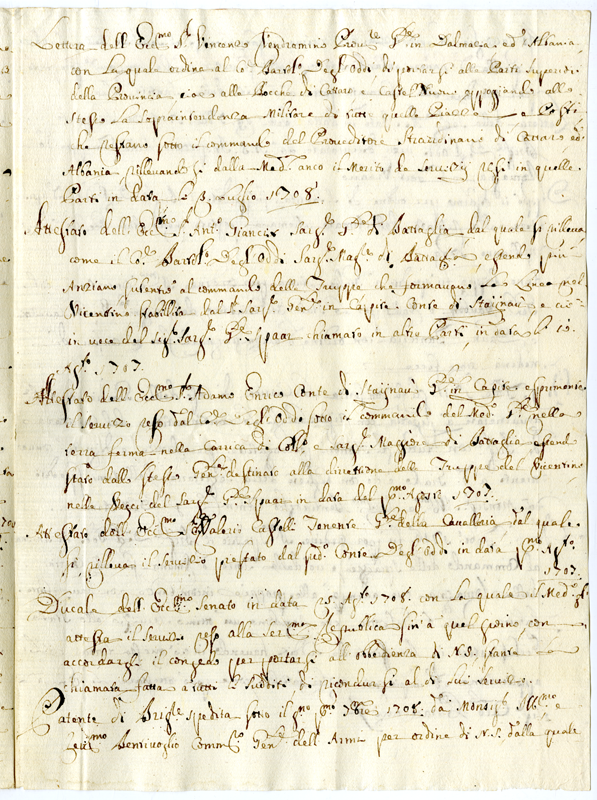 Lettera dell Ecc.mo S.r Vincenzo Vendramino Prov.re G.le in Dalmazia, ed Albania
con la quale ordina al Co: Bartol.o Degl'Oddi di portarsi alle Parti Superiori
della Provincia cioè alle Bocche di Cattaro, e Castel Nuovo appoggiando allo
stesso la Sopraintendenza Militare di tutte quelle Piazze, e Posti
che restano sotto il commando del Proveditore Straordinario di Cattaro ed
Albania rilevandosi dalla Med.a anco il Merito de Servizij resi in quelle
Parti in data li 3 luglio 1708.
Attestato dell Ecc.mo S.r Ant.o Serg.e G.le di Battaglia, dal quale si rilleva
come il Co: Bartol.o Degl'Oddi Sarg.te Mag.re di Battag.a, essendo più
Anziano subentrò al commando delle Truppe che formavano la Linea nel
Vicentino stabilita dal Sarg. Gen.le in Capite Conte di Stajnau, e ciò
in vece del Sig.r Sarg.te G.le Spaar chiamato in altre Parti, in data li 10
Ag.to 1707.
Attestato dell Ecc.mo Adamo Enrico Conte di Stajnau G.le in Capite esprimente
il servizio reso dal Co: Degl'Oddi sotto il commando del Med.o G.le nella
terra ferma nella Carica di Coll.o e Sarg.te Maggiore di Battaglia essend
stato dallo stesso Gen.le destinato alla direttione delle Truppe del Vicentino
nelle Veci del Sarg.te G.le Spaar in data del p.mo Agosto 1707.
Attestato dell Ecc.mo Valerio Castelli Tenente G.le della Cavalleria dal quale
si rilleva il servizio prestato dal sud.o Conte Degl'Oddi in data p.mo Ag.to
1707.
Ducale dell Ecc.mo Senato in data 25 Ag.to 1708. con la quale il Med.o
attesta il servizio reso alla Ser.ma Republica sin' a quel giorno, con
accordargli il congedo per portarsi all' obbedienza di N.S. stante la
chiamata fatta a tutti li sudditi di ricondursi al di lui servizio.
Patente di Brig.re spedita sotto il p.mo 1708. da Monsig.r Ill.mo e
Rev.mo Bentivoglio Comm.o Gen.le dell'Armi per ordine di N.S. dalla quale